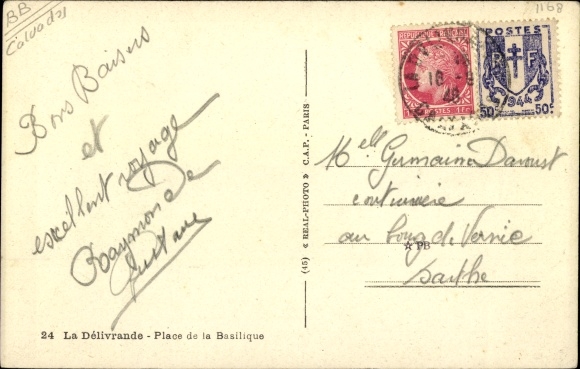 BB
Calvados
1168
Bons Baisers
et
excellent voyage
Raymonde
Gustave
REPUBLIQUE FRANÇAISE
POSTES 1F
POSTES
RF
1944
50c 50c
18
46
Melle Germaine Davoust
couturière
au bourg de
Sarthe
☆ PB
(45) « REAL-PHOTO » C.A.P. - PARIS
24 La Délivrande - Place de la Basilique